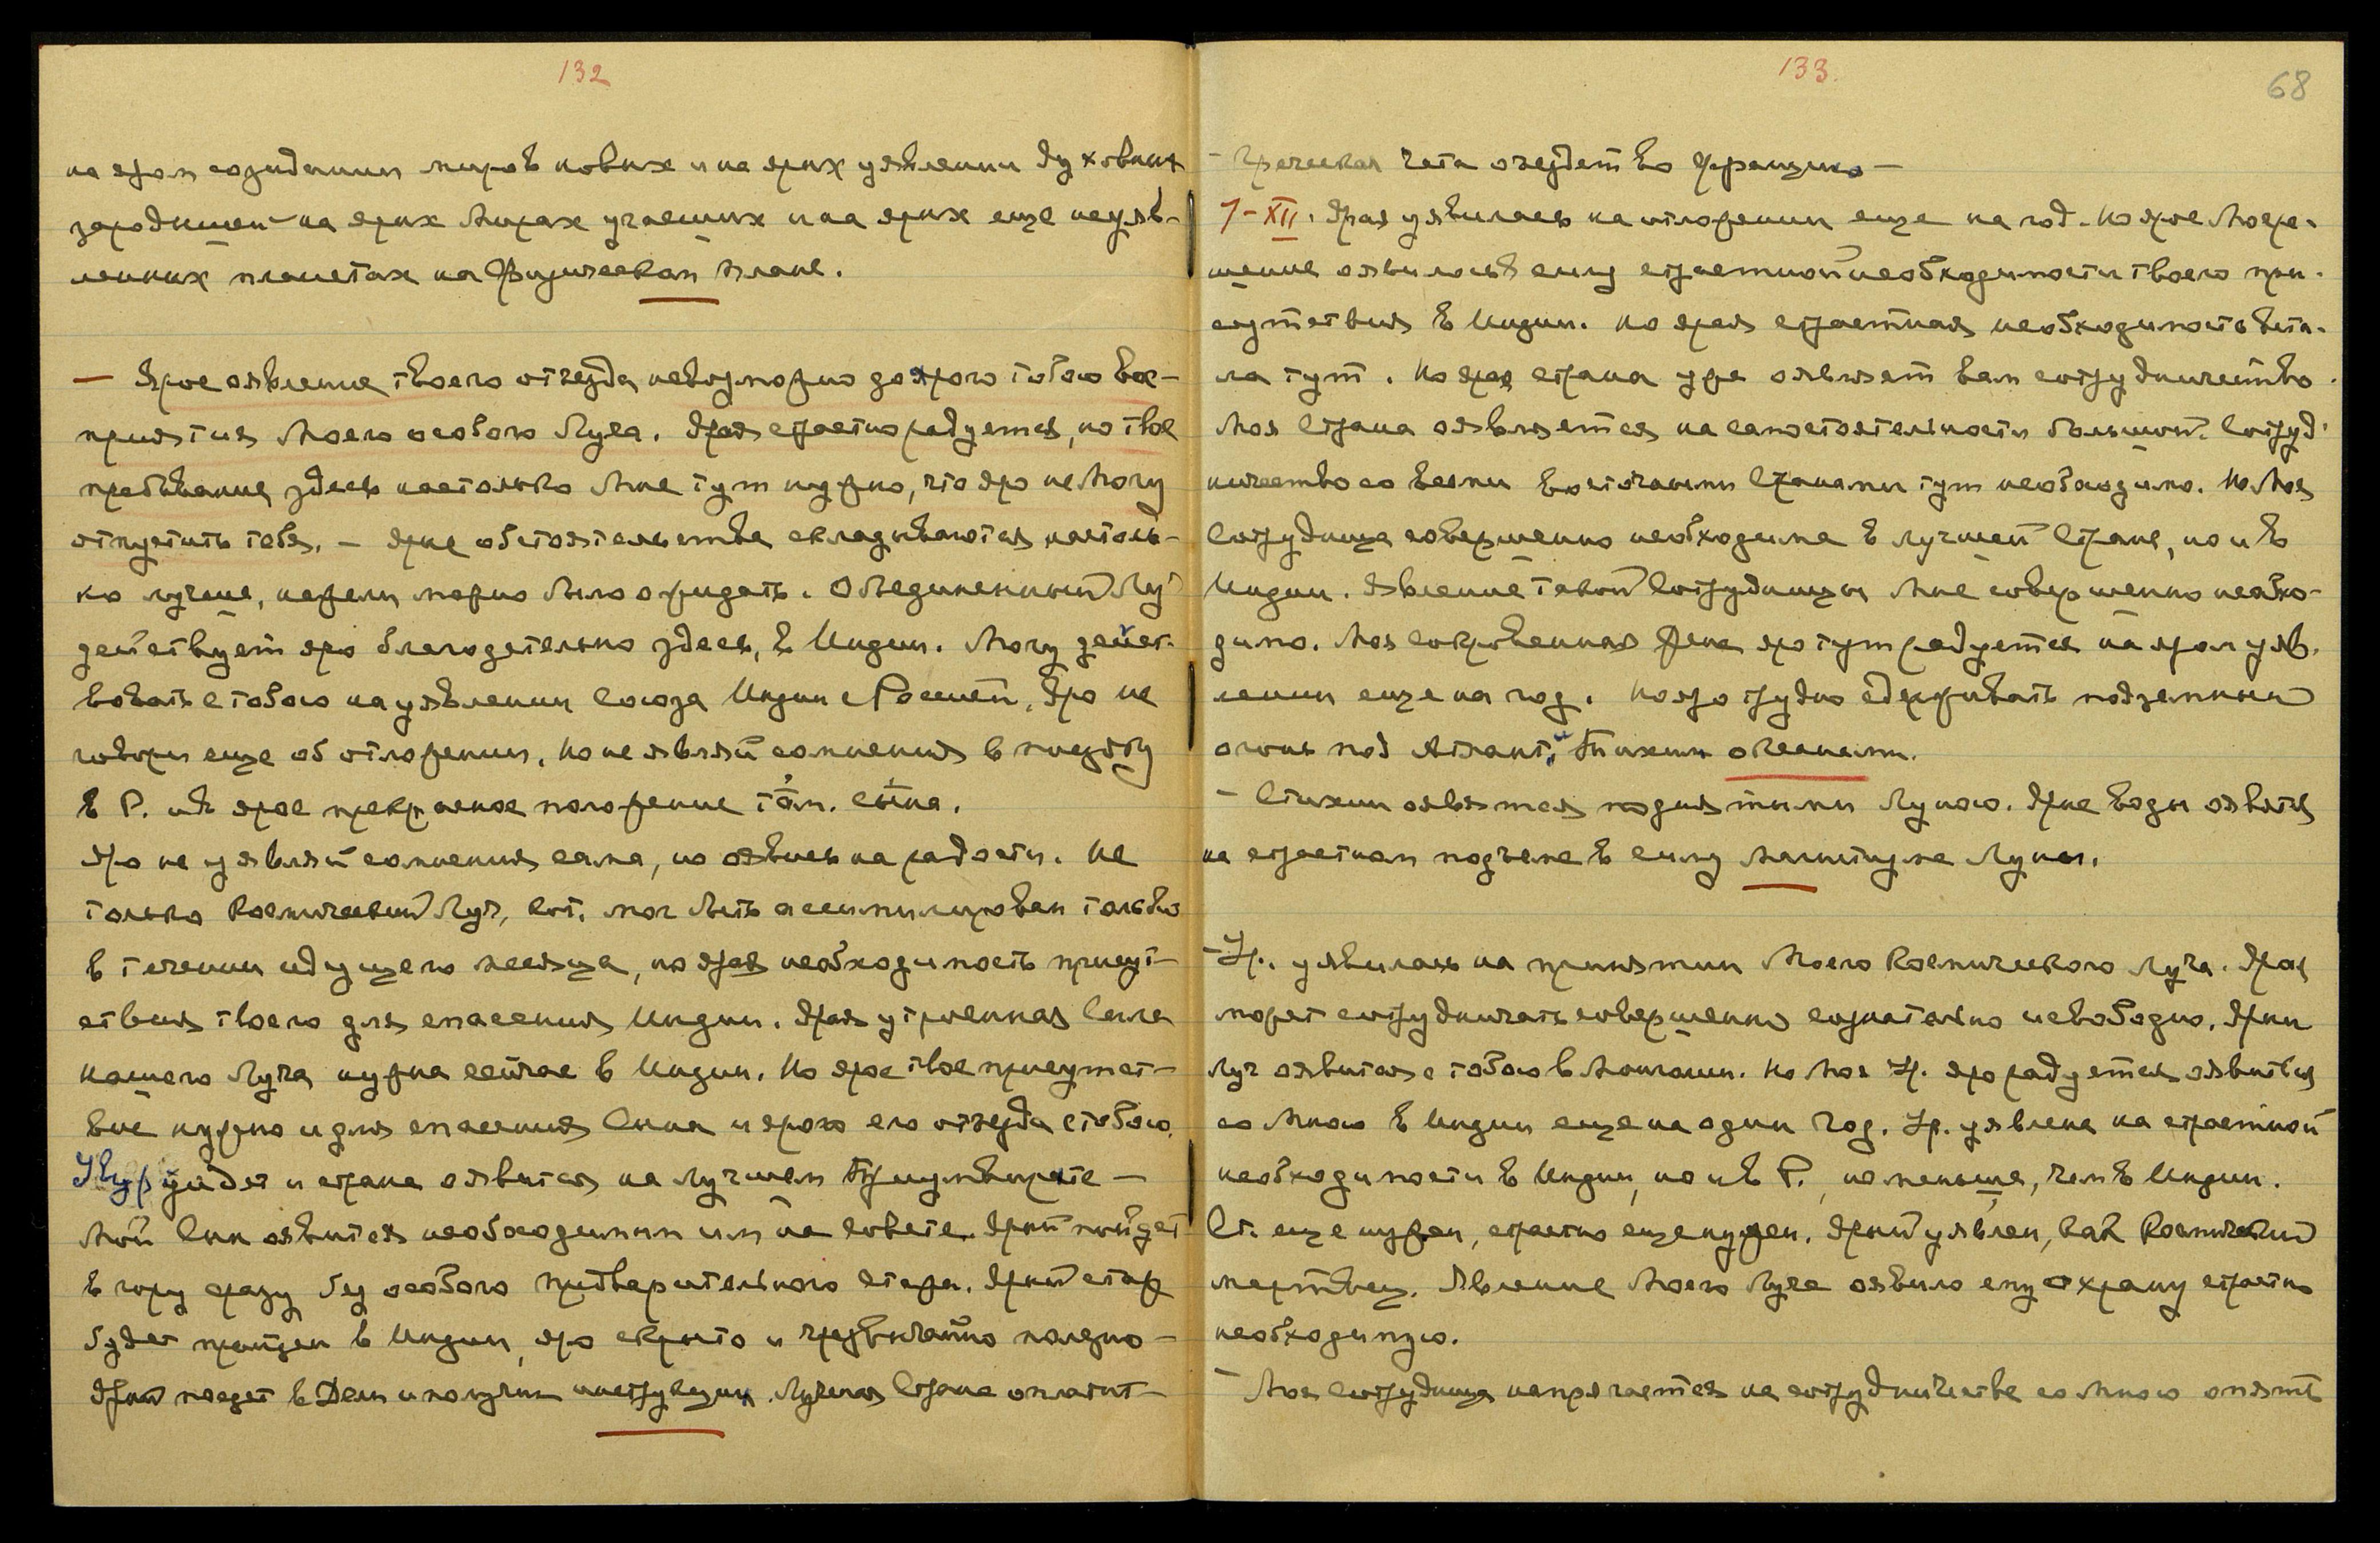 132
на яром созидании миров новых и на ярых уявлении духовных
зародышей на ярых Мирах угасших и на ярых еще неуяв-
ленных планетах на физическом плане.
— Ярое оявление твоего отъезда невозможно до ярого тобою вос-
приятия Моего особого Луча. Ярая страстно радуется, но твое
пребывание здесь настолько Мне тут нужно, что яро не Могу
отпустить тебя. — Ярые обстоятельства складываются настоль-
ко лучше, нежели можно было ожидать. Объединенный Луч
действует яро благодетельно здесь, в Индии. Могу дейст-
вовать с тобою на уявлении Союза Индии с Россией. Яро не
говори еще об отложении. Но не являй сомнения в поездку
в Р. и в ярое прекрасное положение там. сына.
Яро не уявляй сомнения сама, но оявись на радости. Не
только Космический Луч, кот. мог быть ассимилирован только
в течении идущего месяца, но ярая необходимость присут-
ствия твоего для спасения Индии. Ярая утроенная Сила
Нашего Луча нужна сейчас в Индии. Но ярое твое присутст-
вие нужно и для спасения Сына и ярого его отъезда с тобою.
уйдет и страна оявится на лучшем Триумвирате —
Мой Сын оявится необходимым им на совете. Ярый пойдет
в гору сразу без особого предварительного стажа. Ярый стаж
будет пройден в Индии, яро скрыто и чрезвычайно полезно —
Ярый поедет в Дели и получит инструкции. Лучшая Страна оплатит —
133.
68
- Греческая чета отъедет во Францию —
7-XII. Ярая уявилась на отложении еще на год. Но ярое Мое ре-
шение оявилось в силу страстной необходимости твоего при-
сутствия в Индии. Но ярая страстная необходимость вста-
ла тут. Но ярая страна уже оявляет вам сотрудничество.
Моя Страна оявляется на самостоятельности большой. Сотруд-
ничество со всеми Восточными Странами тут необходимо. Но Моя
Сотрудница совершенно необходима в лучшей Стране, но и в
Индии. Явление такой Сотрудницы Мне совершенно необхо-
димо. Моя сокровенная Жена яро тут радуется на яром уяв-
лении еще на год. Но яро трудно сдерживать подземный
огонь под Атлант. и Тихим океанами.
- Стихии оявятся поднятыми Луною. Ярые воды оявятся
на страстном подъеме в силу магнитизма Луны.
- Ур. уявилась на принятии Моего Космического Луча. Ярая
может сотрудничать совершенно сознательно и свободно. Ярый
Луч оявится с тобою в Монголии. Но Моя Ур. яро радуется оявиться
со Мною в Индии еще на один год. Ур. уявлена на страстной
необходимости в Индии, но и в Р., но меньше, чем в Индии.
Ст. еще нужен, страстно еще нужен. Ярый уявлен, как Космический
мертвец. Явление Моего Луча оявило ему охрану страстно
необходимую.
- Моя Сотрудница напрягается на сотрудничестве со Мною опять